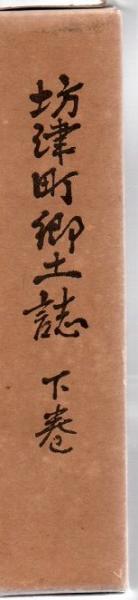 坊津町郷土誌 下巻